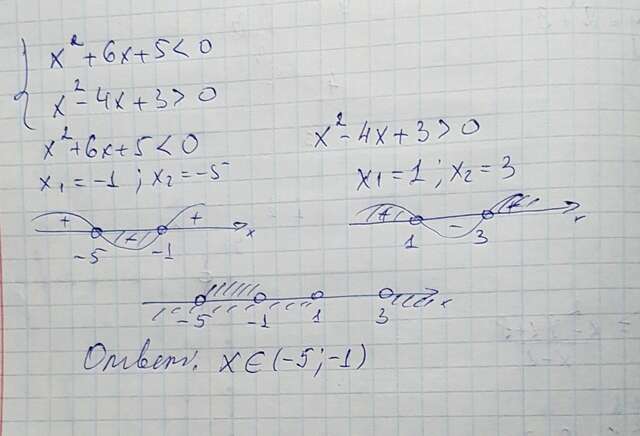 x² + 6x + 5 < 0
x² - 4x + 3 > 0
x² + 6x + 5 < 0
x₁ = -1 ; x₂ = -5
+ + +
-5 -1 x
x² - 4x + 3 > 0
x₁ = 1 ; x₂ = 3
+ - +
1 3 x
-5 -1 1 3 x
Ответ: x ∈ (-5; -1)